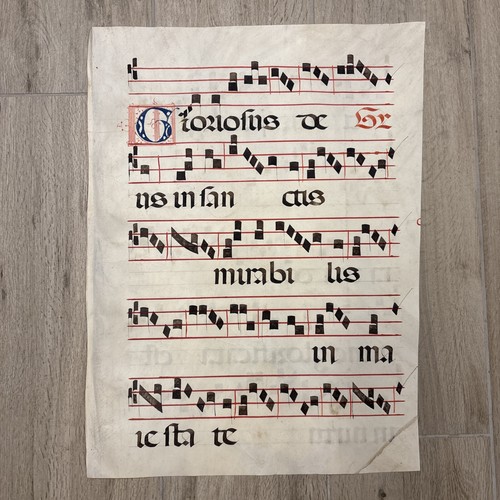 Gloriosus de Gr
us in san ctis
mirabi lis
in ma
ie sta te